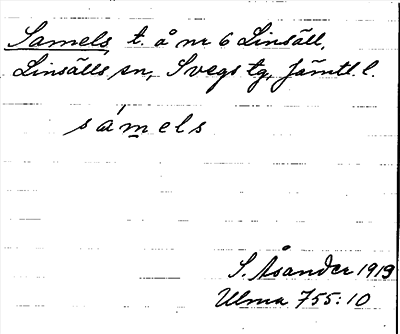 Samels, t. å nr 6 Linsäll,
Linsälls sn, Svegs tg, Jämtl. l.
sámels
S. Åsander 1919
Ulma 755:10